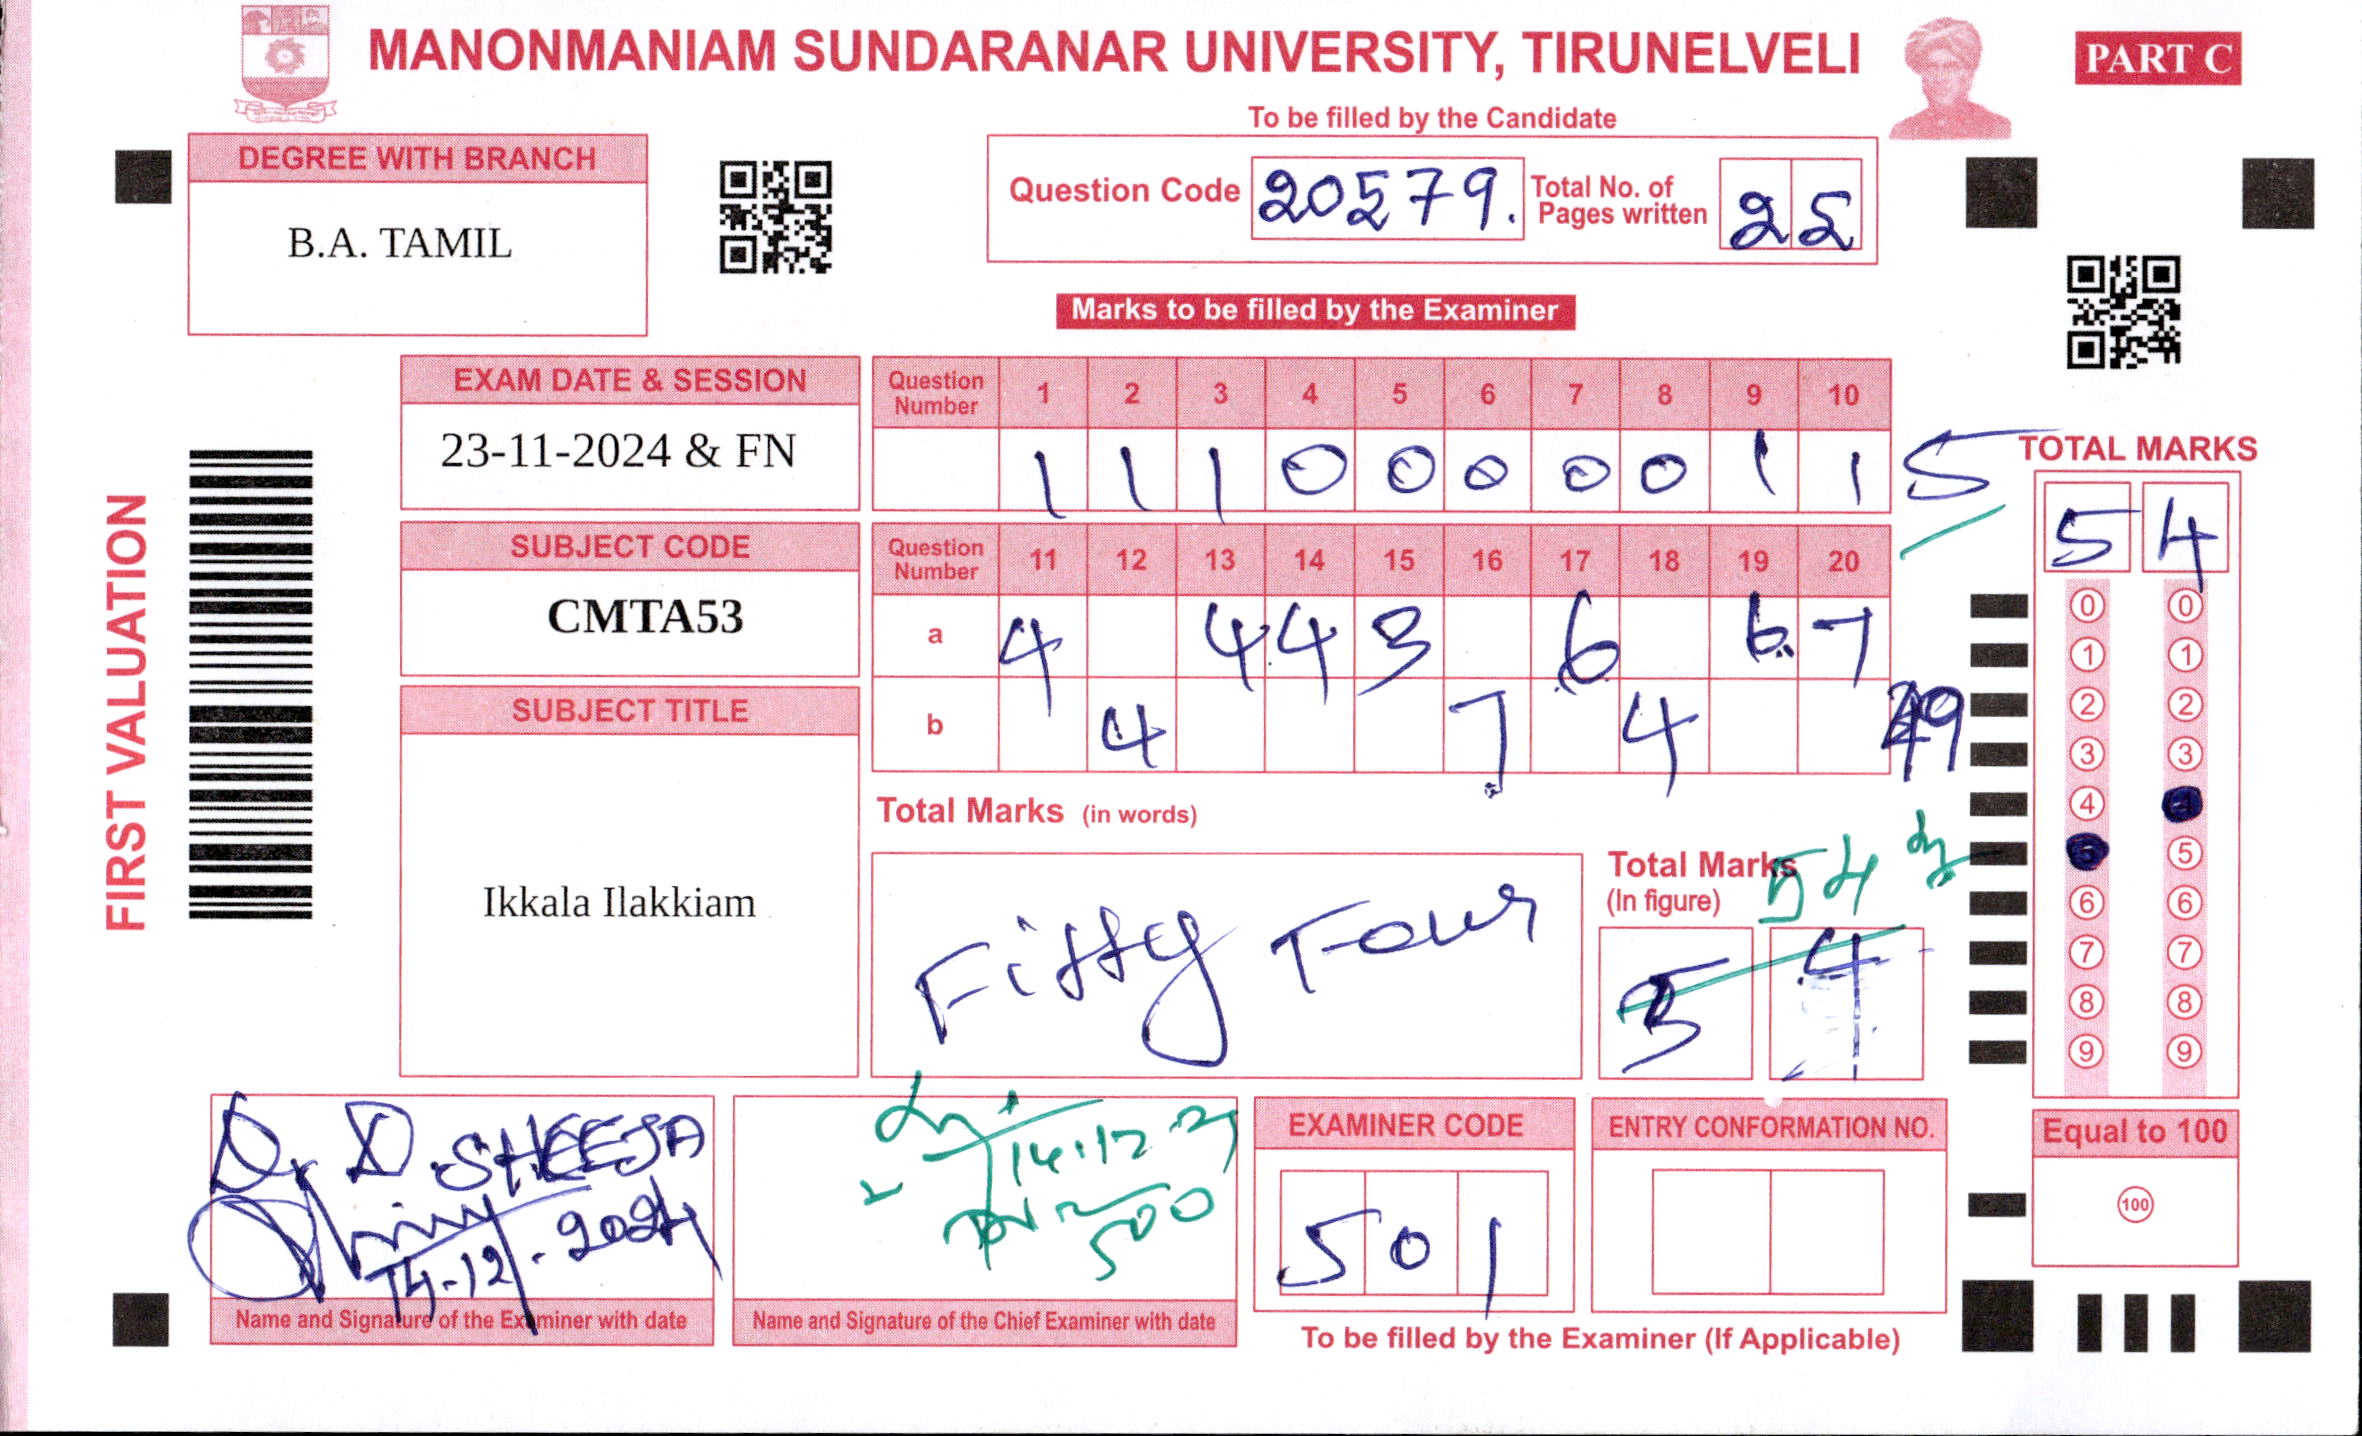 MANONMANIAM SUNDARANAR UNIVERSITY, TIRUNELVELI
PART C
To be filled by the Candidate
DEGREE WITH BRANCH
B.A. TAMIL
Question Code 20579. Total No. of Pages written 25
Marks to be filled by the Examiner
FIRST VALUATION
EXAM DATE & SESSION
23-11-2024 & FN
SUBJECT CODE
CMTA53
SUBJECT TITLE
Ikkala Ilakkiam
Question Number 1 2 3 4 5 6 7 8 9 10
1 1 1 0 0 0 0 0 1 1 5
Question Number 11 12 13 14 15 16 17 18 19 20
a 4 4 4 3 6 6. 7
b 4 7 4 49
Total Marks (in words)
Fifty Four
Total Marks (In figure)
54
5 4
TOTAL MARKS
5 4
0 0
1 1
2 2
3 3
4
5
6 6
7 7
8 8
9 9
Equal to 100
100
Dr D. SHEEJA
14-12-2024
Name and Signature of the Examiner with date
14.12.24
500
Name and Signature of the Chief Examiner with date
EXAMINER CODE
501
ENTRY CONFORMATION NO.
To be filled by the Examiner (If Applicable)